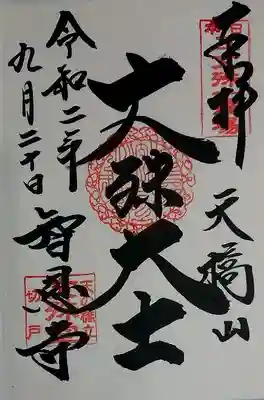 奉拝
天橋山
文殊大士
令和二年
九月二十日
智恩寺